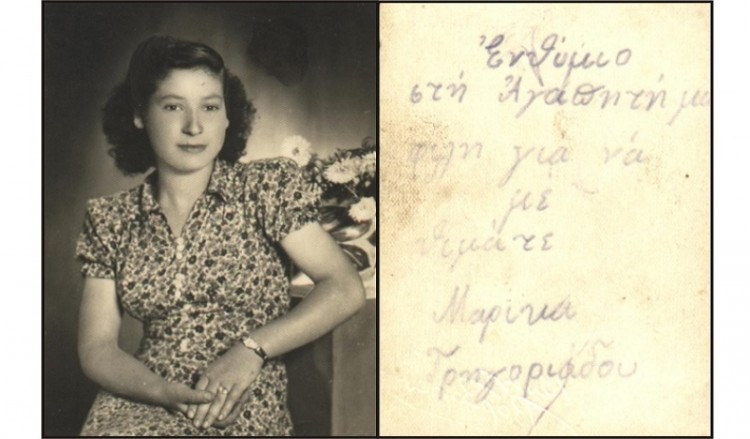 Ἐνθύμιο
στή Ἀγαπητή μου
φίλη για νά
με
θιμάτε
Μαρίκα
Γρηγοριάδου